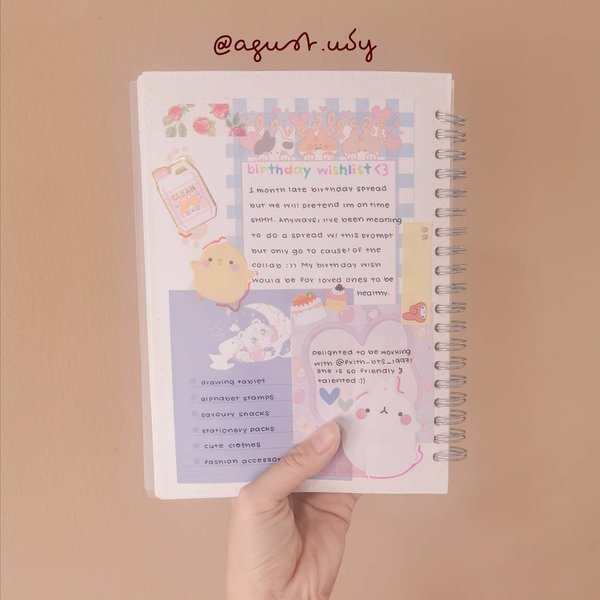 @agust.udy
birthday wishlist <3
1 month late birthday spread
but we will pretend im on time
SHHH. Anyways, i've been meaning
to do a spread w/ this prompt
but only go to cause' of the
collab :)) My birthday wish
would be for loved ones to be
healthy.
CLEAN
Delighted to be working
with @prith_bts_1997!
she is so friendly &
talented :))
drawing tablet
alphabet stamps
savoury snacks
stationery packs
cute clothes
fashion accessor